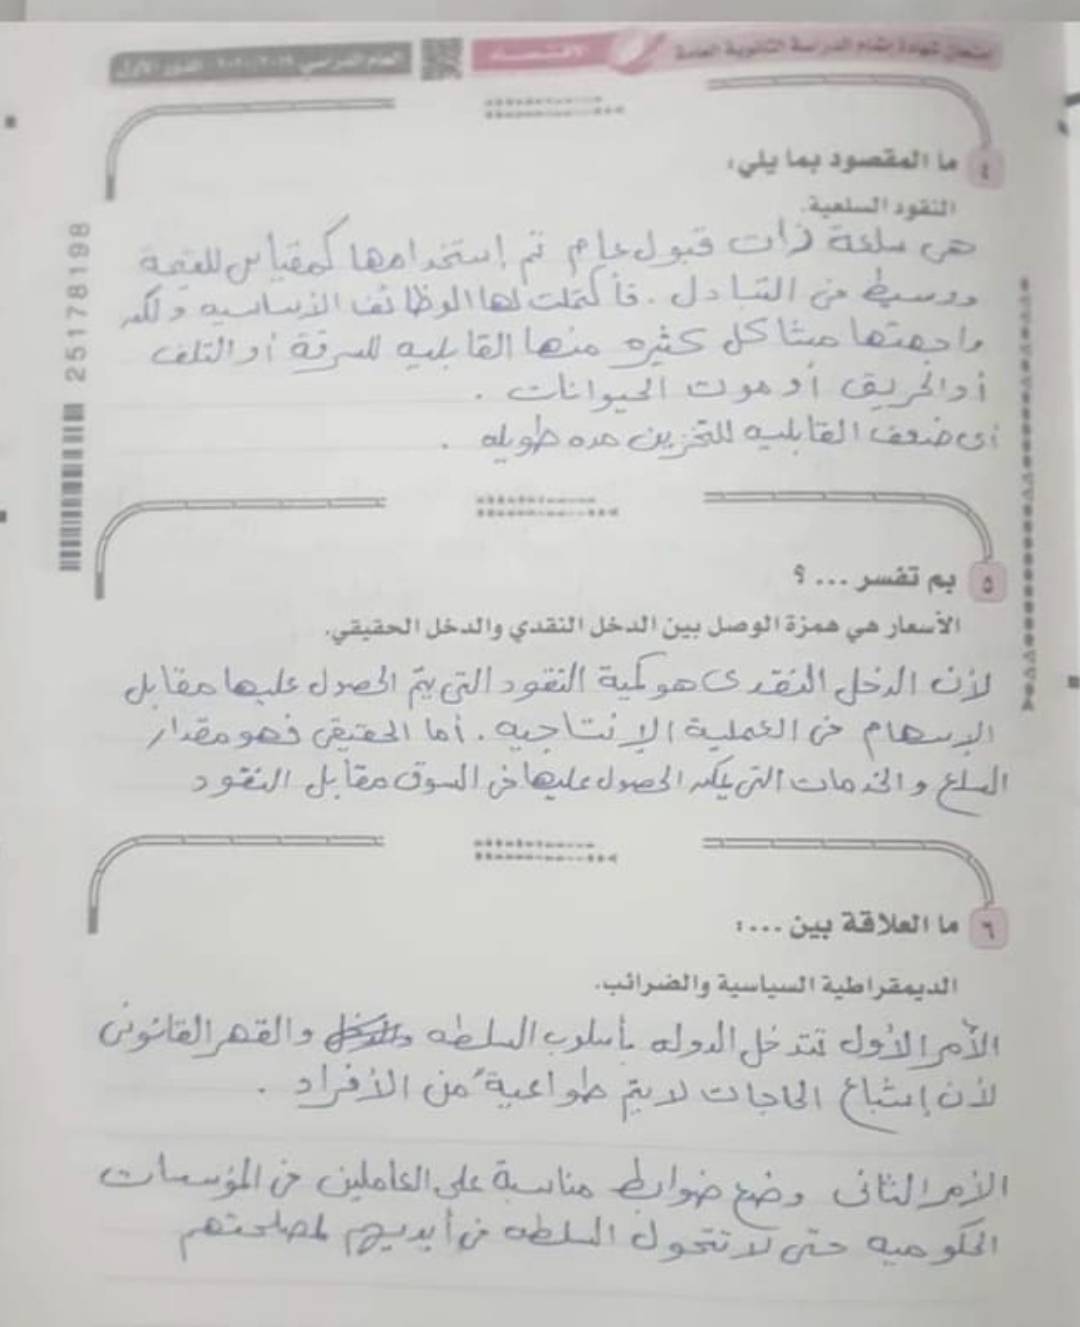 امتحان شهادة إتمام الدراسة الثانوية العامة
الاقتصاد
العام الدراسي ٢٠١٩ / ٢٠٢٠ - الدور الأول
٤ ما المقصود بما يلي:
النقود السلعية.
هى سلعة ذات قبول عام تم إستخدامها كمقياس للقيمة
ووسيط فى التبادل . فأكتملت لها الوظائف الأساسيه ولكن
واجهتها مشاكل كثيره منها القابليه للسرقة أو التلف
أو الحريق أو موت الحيوانات .
أى ضعف القابليه للتخزين مده طويله .
25178198
٥ بم تفسر ... ؟
الأسعار هي همزة الوصل بين الدخل النقدي والدخل الحقيقي.
لأن الدخل النقدى هو كمية النقود التى يتم الحصول عليها مقابل
الإسهام فى العملية الإنتاجيه . أما الحقيقى فهو مقدار
السلع والخدمات التى يمكن الحصول عليها فى السوق مقابل النقود
٦ ما العلاقة بين ...:
الديمقراطية السياسية والضرائب.
الأمر الأول تتدخل الدوله بأسلوب السلطه والقهر القانونى
لأن إشباع الحاجات لا يتم طواعية من الأفراد .
الأمر الثانى وضع ضوابط مناسبة على العاملين فى المؤسسات
الحكوميه حتى لا تتحول السلطه فى أيديهم لمصلحتهم